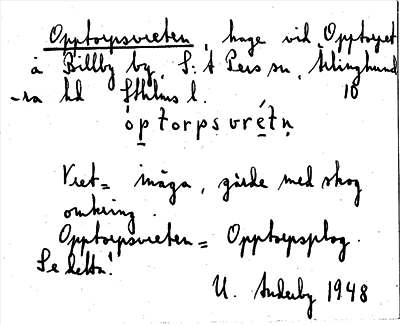 Opptorpsvreten, hage vid Opptorpet
å Billby by, S:t Pers sn, Ärlinghund
-ra hd Sthlms l. 10
óptorpsvrétn̥
Vret = inäga, gärde med skog
omkring.
Opptorpsvreten = Opptorpsplog.
Se detta!
U. Anderby 1948